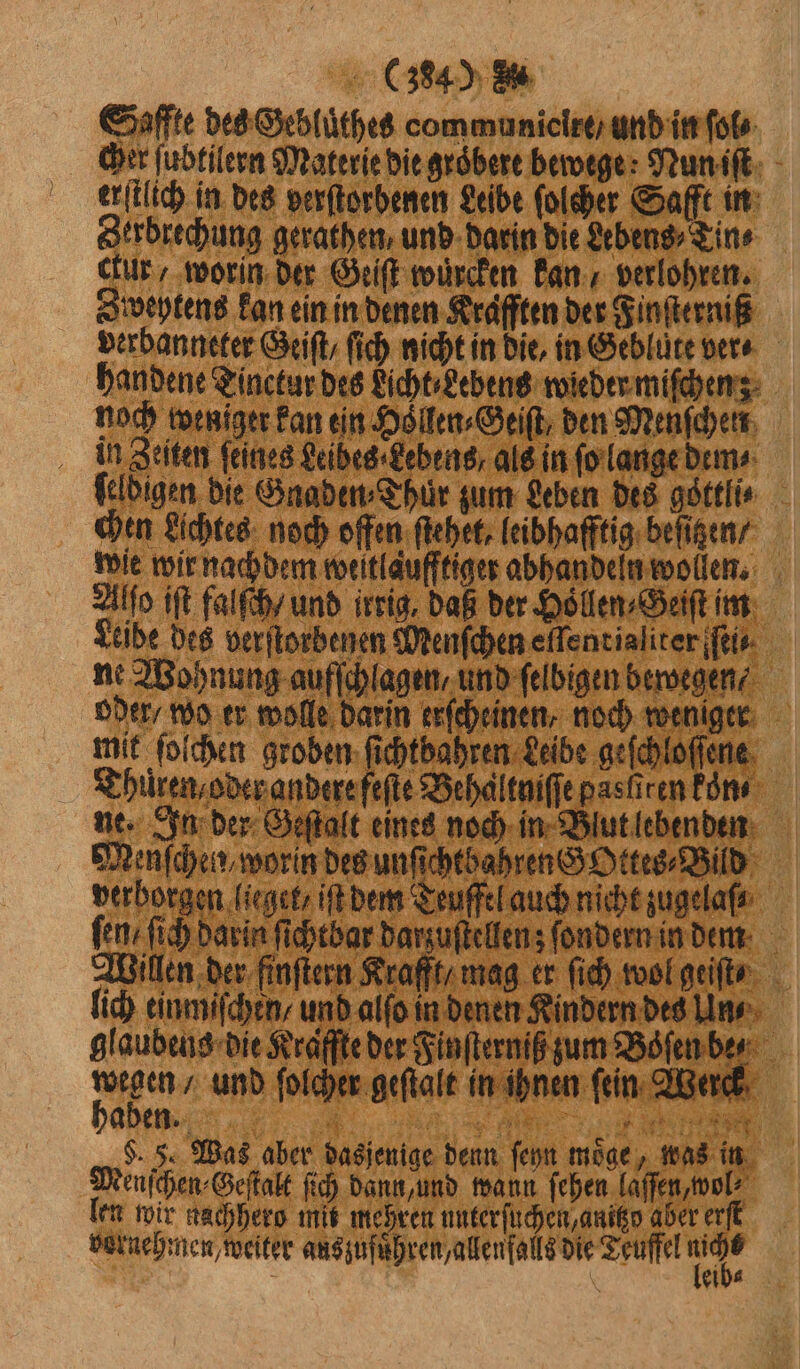 (384)
Saffte des Geblůthes communicire/ und in ſol⸗
cher ſubtilern Materie die grôbere bewege: Nun iſt
erſtlich in des verſtorbenen Leibe ſolcher Safft in
Zerbrechung gerathen/ und darin die Lebens⸗Tin⸗
ctur/ worin der Geiſt wuͤrcken kan/ verlohren.
Zweytens kan ein in denen Kraͤfften der Finſterniß
verbanneter Geiſt/ ſich nicht in die/ in Gebluͤte ver⸗
handene Tinctur des Licht⸗Lebens wieder miſchen;
noch weniger kan ein Hoͤllen⸗Geiſt/ den Menſchen
in Zeiten ſeines Leibes⸗Lebens/ als in ſo lange dem⸗
ſelbigen die Gnaden⸗Thuͤr zum Leben des goͤttli⸗
chen Lichtes noch offen ſtehet/ leibhafftig beſitzen/
wie wir nachdem weitlaͤufftiger abhandeln wollen.
Alſo iſt falſch/ und irrig/ daß der Hoͤllen⸗Geiſt im
Leibe des verſtorbenen Menſchen eſſentialiter ſei⸗
ne Wohnung aufſchlagen/ und ſelbigen bewegen/
oder/ wo er wolle darin erſcheinen/ noch weniger
mit ſolchen groben ſichtbahren Leibe geſchloſſene
Thuͤren/ oder andere feſte Behaͤltniſſe pasſiren koͤn⸗
ne. In der Geſtalt eines noch in Blut lebenden
Menſchen/ worin des unſichtbahren GOttes⸗Bild
verborgen lieget/ iſt dem Teuffel auch nicht zugelaſ⸗
ſen/ ſich darin ſichtbar darzuſtellen; ſondern in dem
Willen der finſtern Krafft/ mag er ſich wol geiſt⸗
lich einmiſchen/ und alſo in denen Kindern des Un⸗
glaubens die Kraͤffte der Finſterniß zum Boͤſen be⸗
wegen/ und ſolcher geſtalt in ihnen ſein Werck
haben.
§. 5. Was aber dasjenige denn ſeyn moͤge, was in
Menſchen⸗Geſtalt ſich dann, und wann ſehen laſſen, wol⸗
len wir nachhero mit mehren unterſuchen, anitzo aber erſt
vornehmen, weiter auszufuͤhren, allenfalls die Teuffel nicht
leib⸗